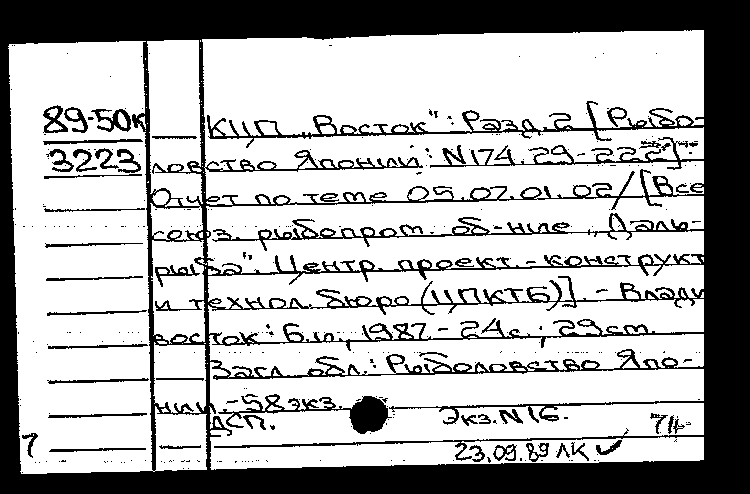 89-50к КЦП „Восток": Разд. 2 [Рыбо-
3223 ловство Японии: N174.29-222]:
Отчет по теме 05.07.01.02/[Все
союз. рыбопром. об-ние „Даль-
рыба". Центр. проект.-конструкт
и технол. бюро (ЦПКТБ)]. - Влади
восток: Б.и., 1987. - 24с.; 29см.
Загл. обл.: Рыболовство Япо-
нии. - 58экз.
ДСП. Экз. N16. 74-
7 23.09.89 ЛК